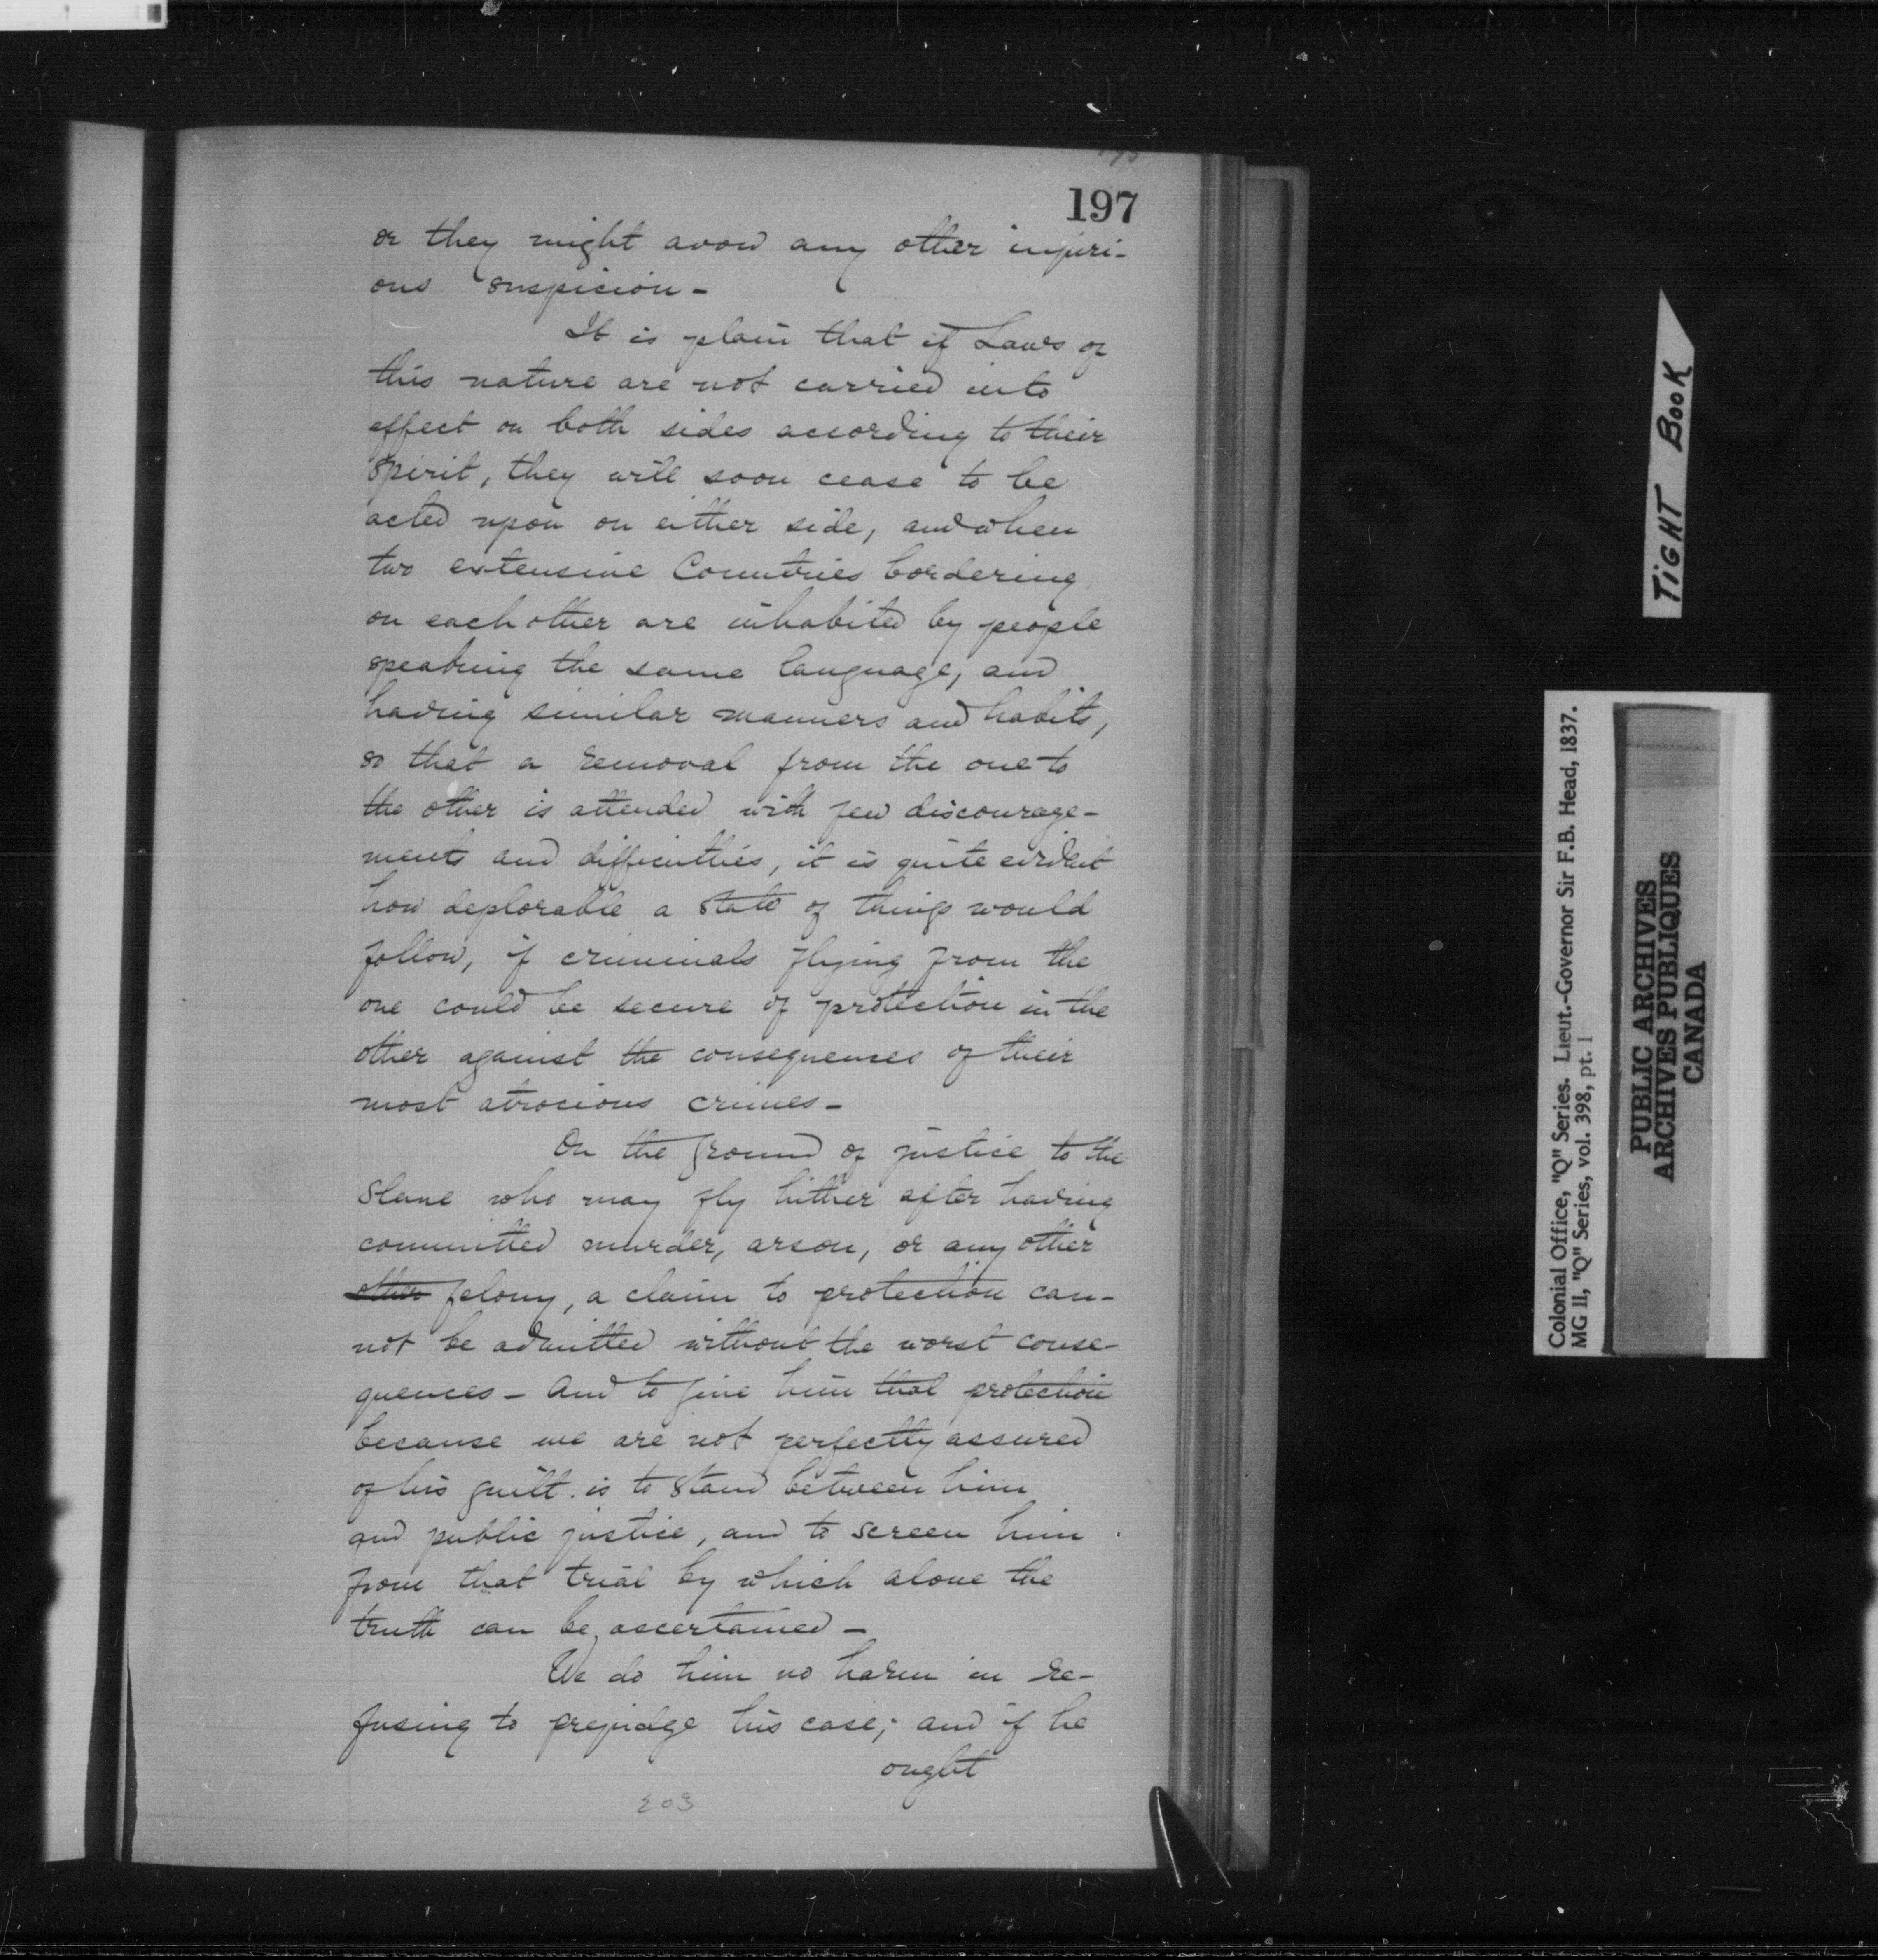 197
or they might avow any other injuri-
ous suspicion -
It is plain that if Laws of
this nature are not carried into
effect on both sides according to their
spirit, they will soon cease to be
acted upon on either side, and when
two extensive Countries bordering
on each other are inhabited by people
speaking the same language, and
having similar manners and habits,
so that a removal from the one to
the other is attended with few discourage-
ments and difficulties, it is quite evident
how deplorable a state of things would
follow, if criminals flying from the
one could be secure of protection in the
other against the consequences of their
most atrocious crimes -
On the ground of justice to the
Slave who may fly hither after having
committed murder, arson, or any other
other felony, a claim to protection can-
not be admitted without the worst conse-
quences - And to give him that protection
because we are not perfectly assured
of his guilt. is to stand between him
and public justice, and to screen him
from that trial by which alone the
truth can be ascertained -
We do him no harm in re-
fusing to prejudge his case; and if he
ought
203
TIGHT BOOK
Colonial Office, "Q" Series. Lieut.-Governor Sir F.B. Head, 1837.
MG 11, "Q" Series, vol. 398, pt. 1
PUBLIC ARCHIVES
ARCHIVES PUBLIQUES
CANADA